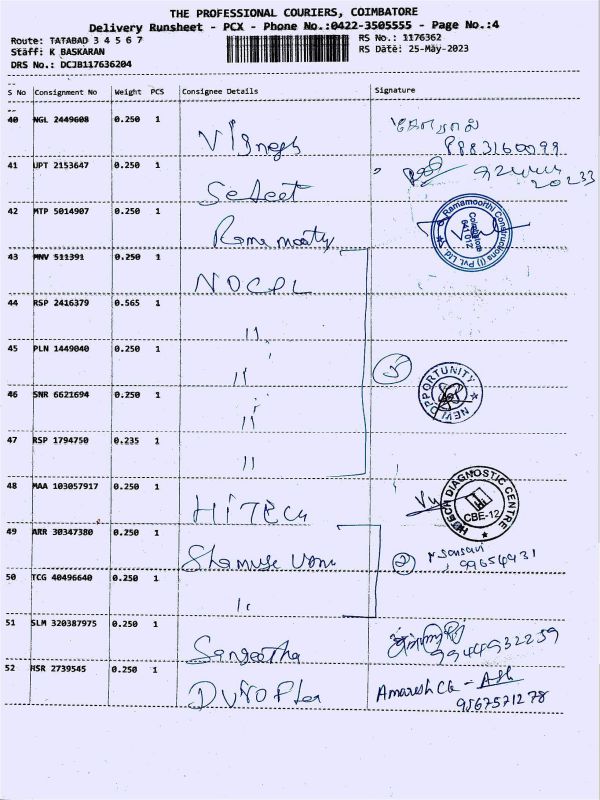 THE PROFESSIONAL COURIERS, COIMBATORE
Delivery Runsheet - PCX - Phone No.:0422-3505555 - Page No.:4
Route: TATABAD 3 4 5 6 7
RS No.: 1176362
Staff: K BASKARAN
RS Date: 25-May-2023
DRS No.: DCJB117636204
S No Consignment No Weight PCS Consignee Details Signature
40 NGL 2449608 0.250 1 Vignesh
8883160099
41 UPT 2153647 0.250 1 Select
20233
42 MTP 5014907 0.250 1
Ramamoorthi Constructions (I) Pvt. Ltd.
Coimbatore
641 012
43 MNV 511391 0.250 1 NOCPL
44 RSP 2416379 0.565 1 "
45 PLN 1449040 0.250 1 "
5
46 SNR 6621694 0.250 1 "
NEVI OPPORTUNITY
47 RSP 1794750 0.235 1 "
48 MAA 103057917 0.250 1 HiTECH
HITECH DIAGNOSTIC CENTRE
CBE-12
49 ARR 30347380 0.250 1
2
50 TCG 40496640 0.250 1 "
51 SLM 320387975 0.250 1 Sangeetha
9944932259
52 HSR 2739545 0.250 1
Amaresh
9567571278